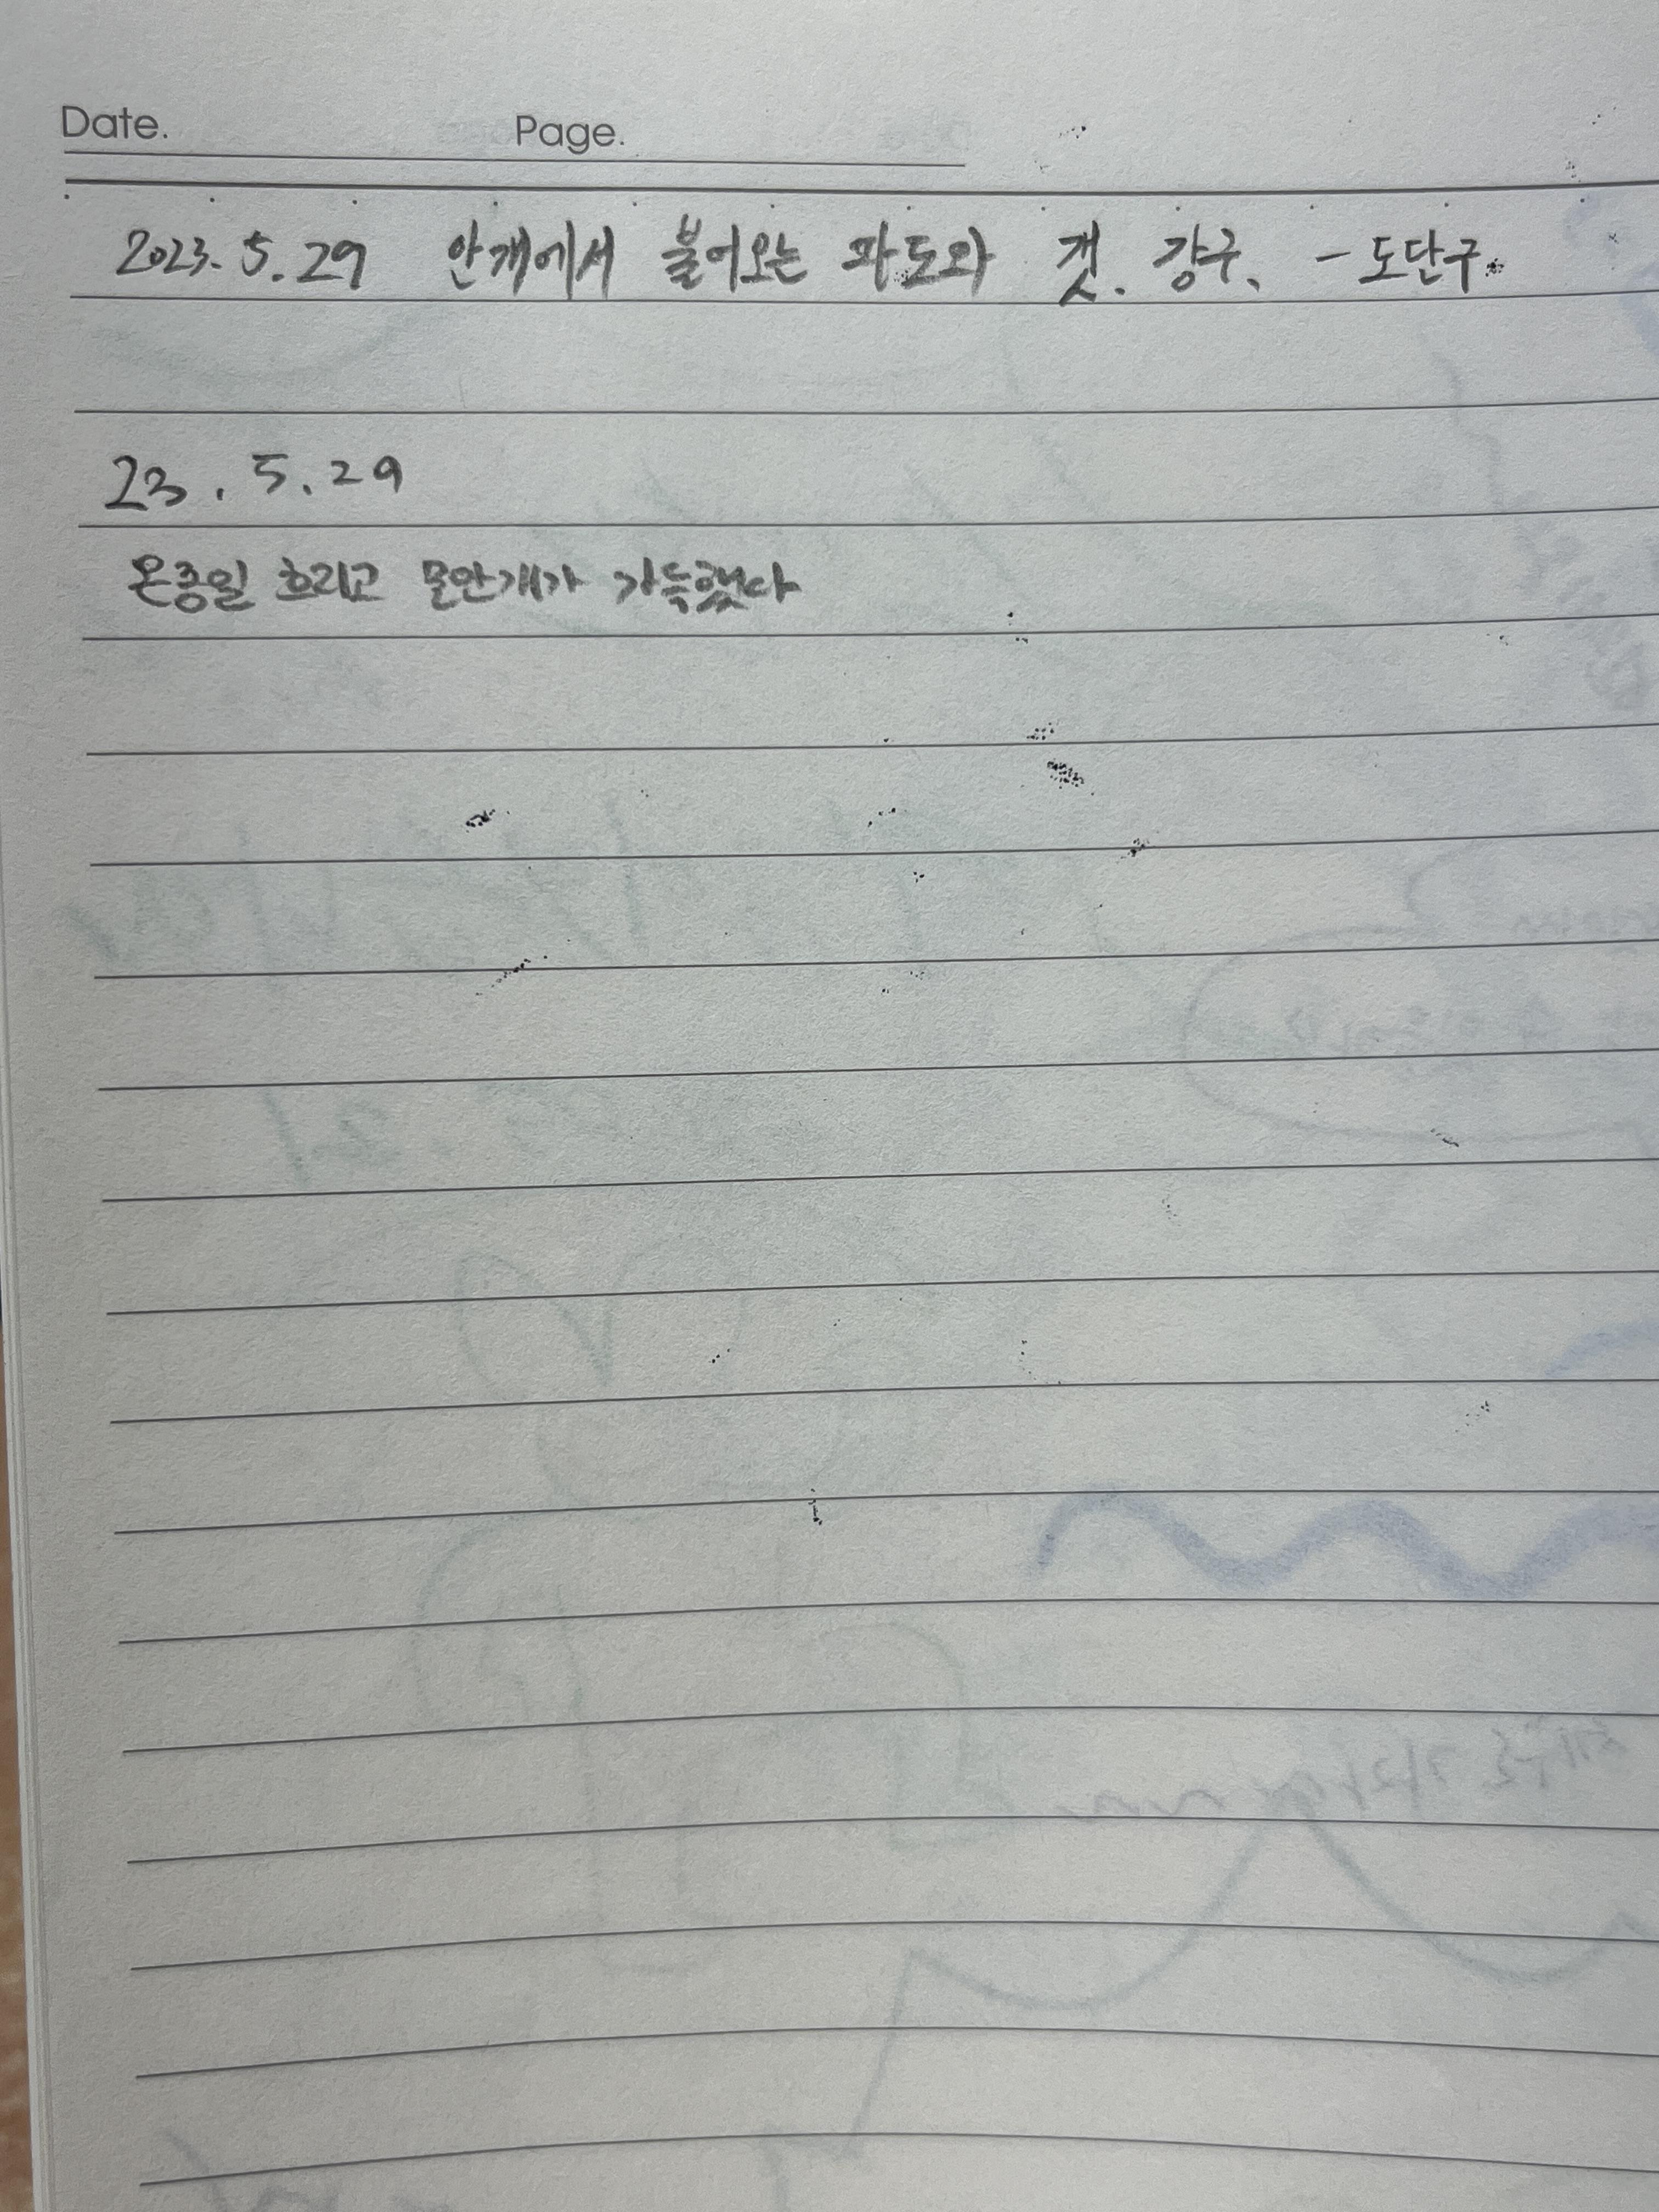 Date. Page.
2023. 5. 29 안개에서 불어오는 파도와 갯. 강구、 - 도단구.
23. 5. 29
온종일 흐리고 물안개가 가득했다